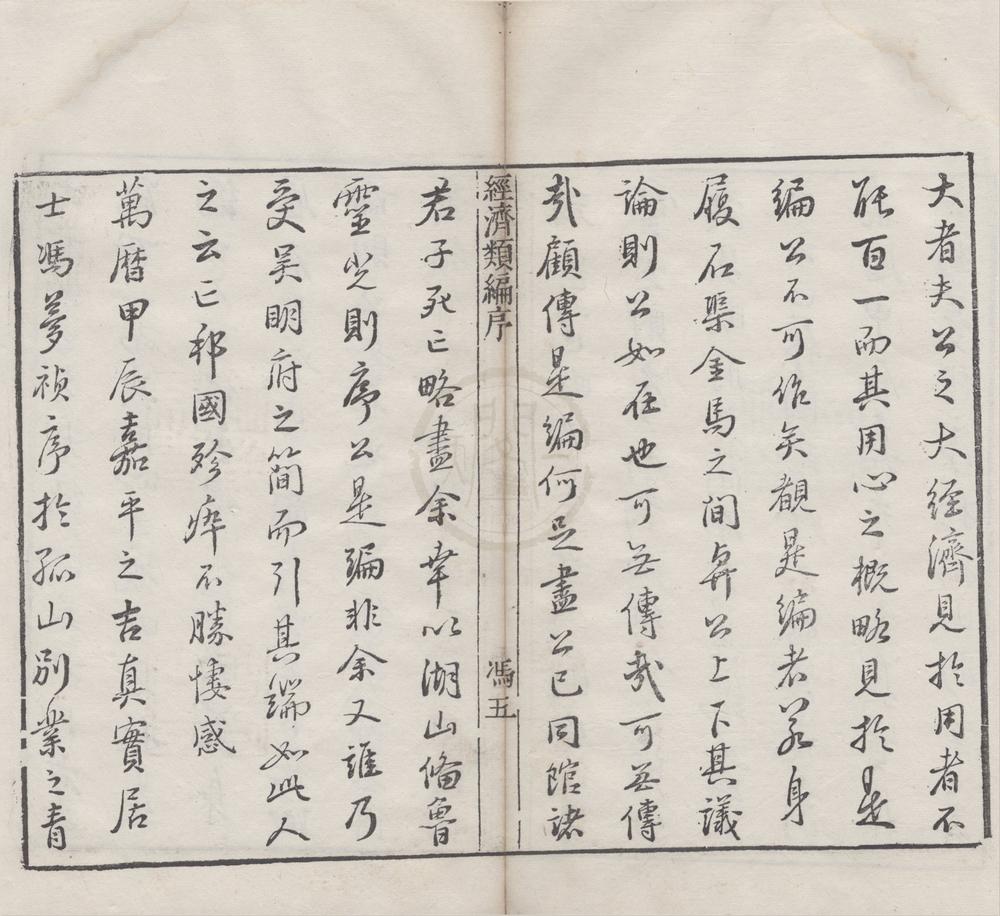 大者夫公之大經濟見於用者不
能百一而其用心之概略見於是
編公不可作矣覩是編者若身
履石渠金馬之間與公上下其議
論則公如在也可無傳哉可無傳
哉顧傳是編何足盡公已同館諸
經濟類編序
馮五
君子死亡略盡余幸以湖山偹魯
靈光則序公是編非余又誰乃
受吴明府之簡而引其端如此人
之云亡邦國殄瘁不勝悽感
萬曆甲辰嘉平之吉真實居
士馮夢禎序於孤山別業之青